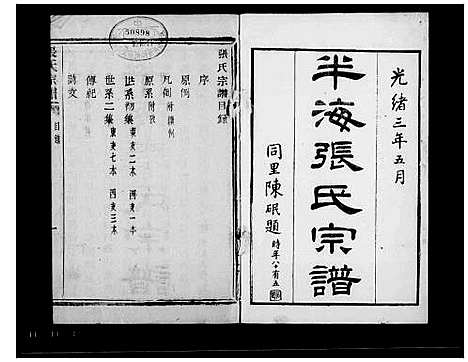 光緒三年五月
半海張氏宗譜
同里陳砇題 時年八十有五
張氏宗譜目錄
序
原例
凡例 附 條例
原系 附 攷
世系初集 東支二本 西支一本
世系二集 東支七本 西支三本
傳紀
詩文
目錄
50898